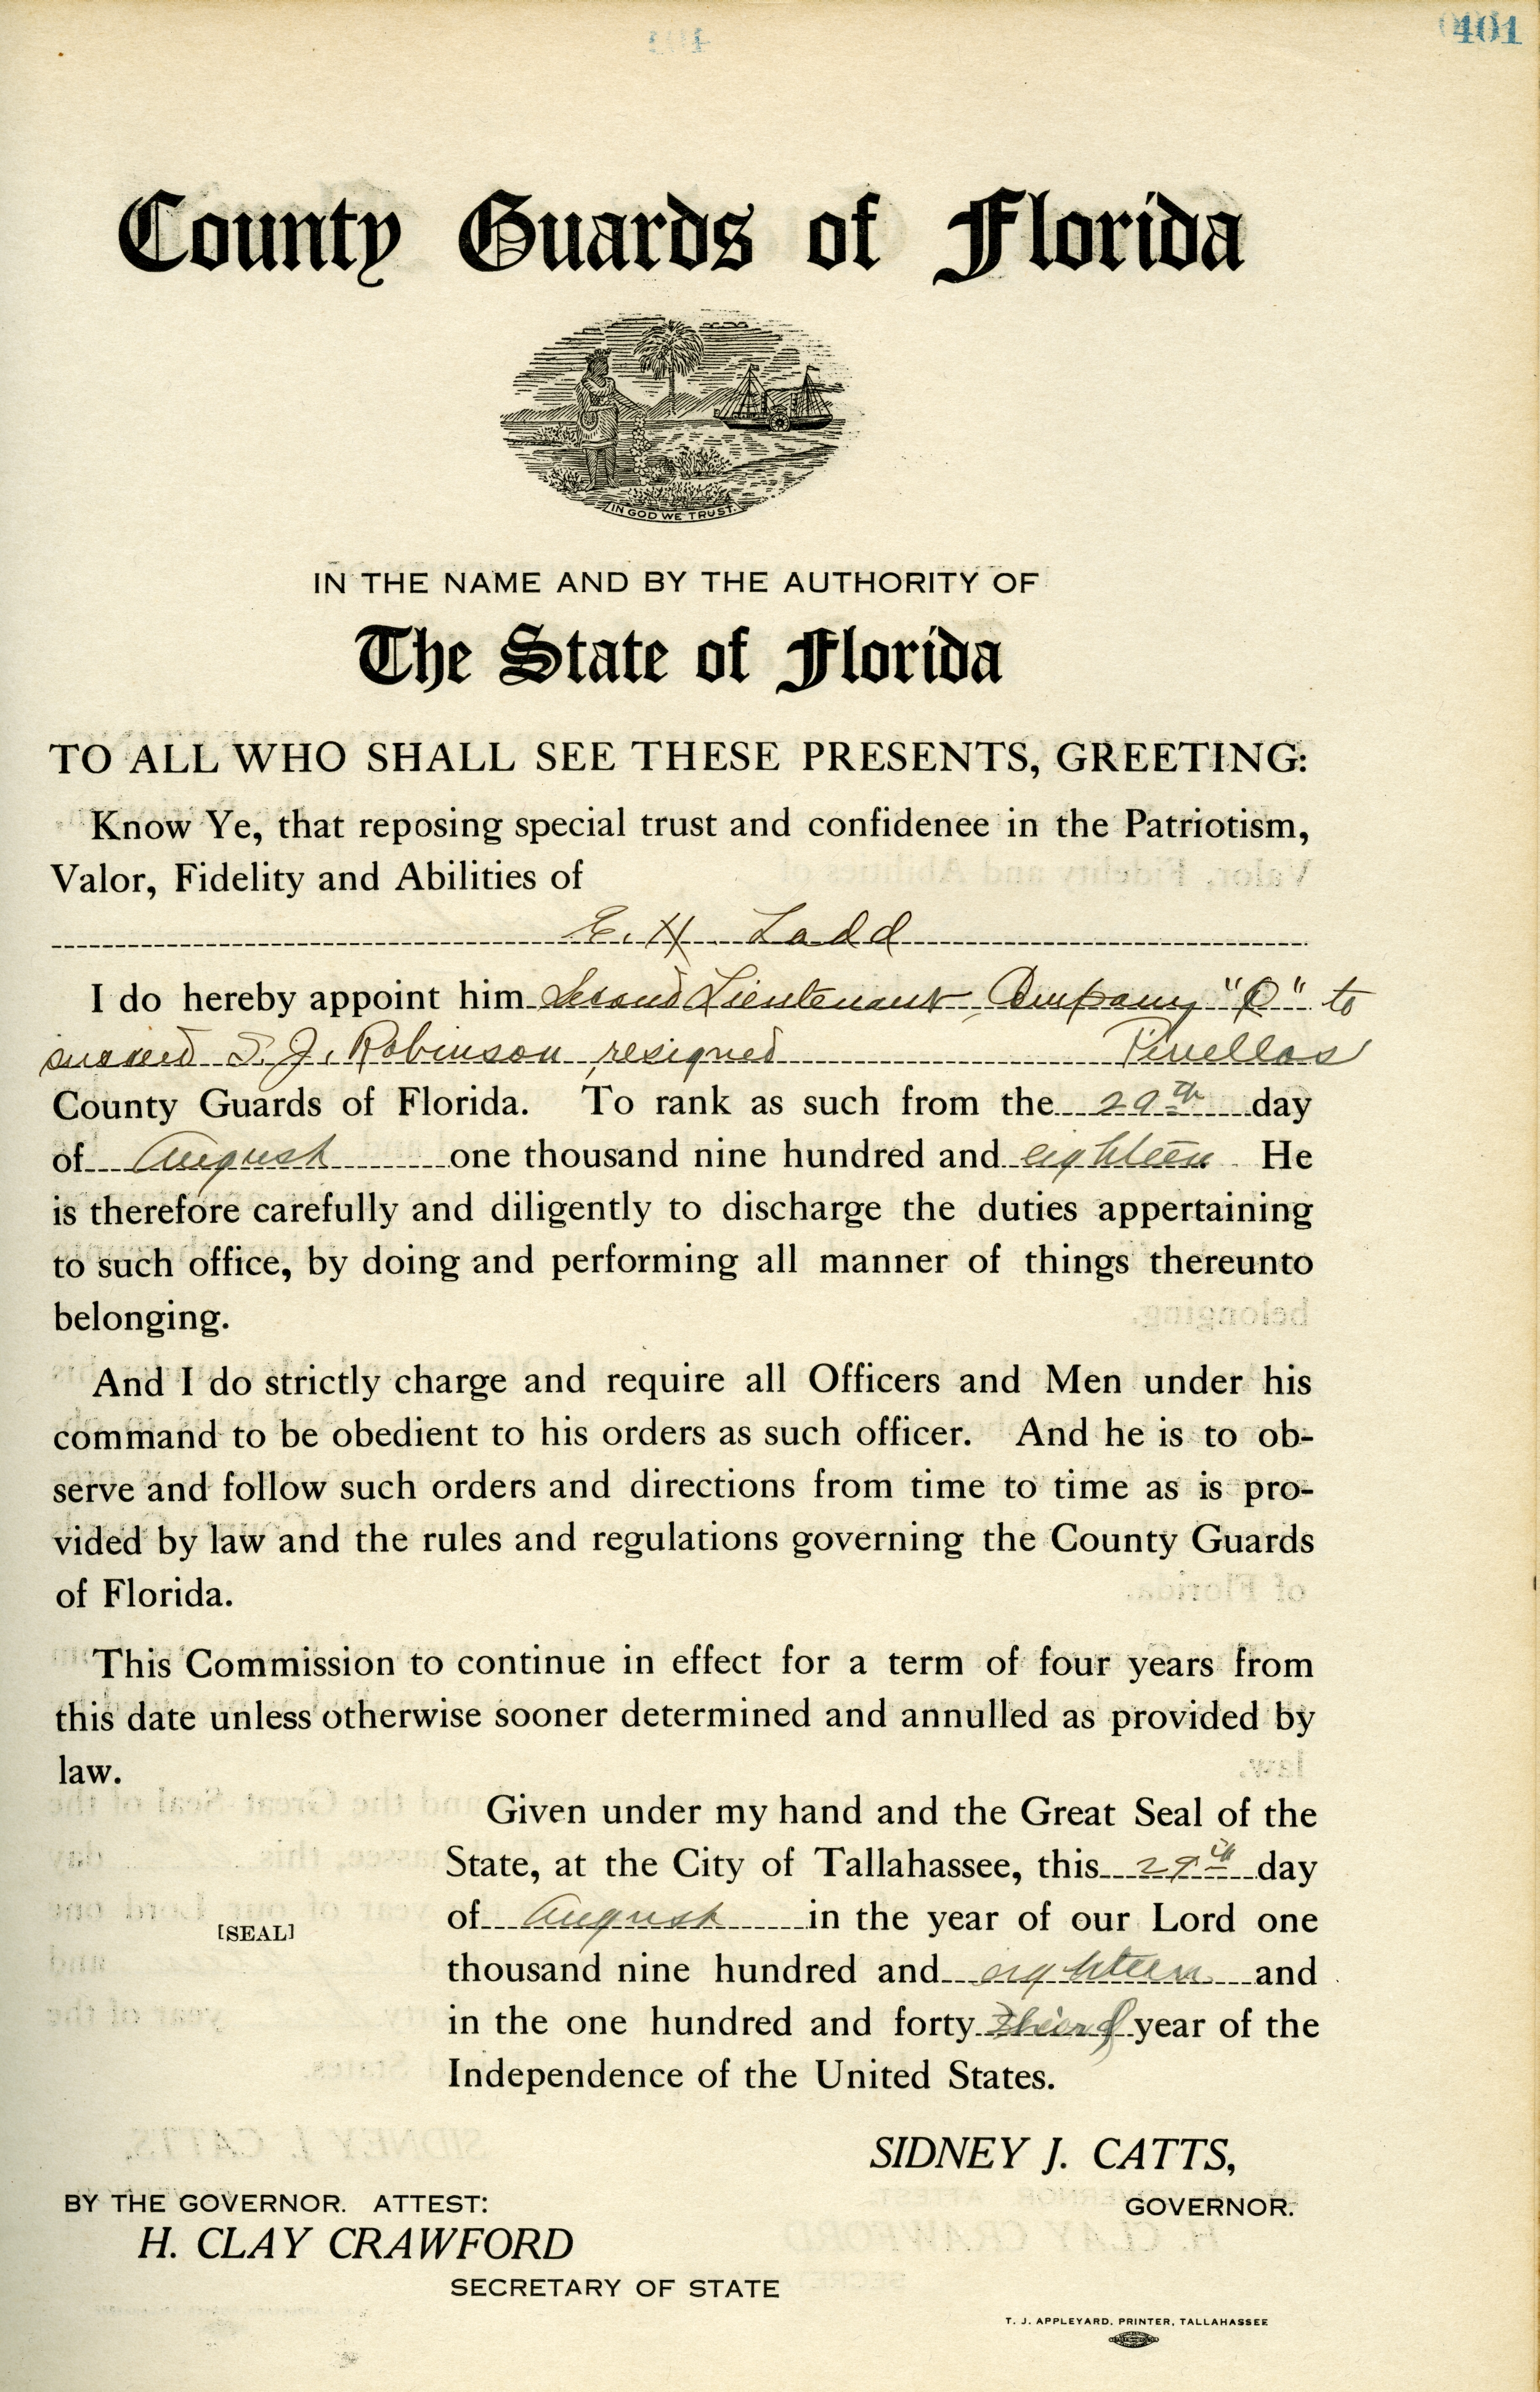 401
County Guards of Florida
IN GOD WE TRUST.
IN THE NAME AND BY THE AUTHORITY OF
The State of Florida
TO ALL WHO SHALL SEE THESE PRESENTS, GREETING:
Know Ye, that reposing special trust and confidenee in the Patriotism,
Valor, Fidelity and Abilities of
E. H. Ladd
I do hereby appoint him Second Lieutenant, Company to
succeed J. Robinson, resigned Pinellas
County Guards of Florida. To rank as such from the 29th day
of August one thousand nine hundred and eighteen He
is therefore carefully and diligently to discharge the duties appertaining
to such office, by doing and performing all manner of things thereunto
belonging.
And I do strictly charge and require all Officers and Men under his
command to be obedient to his orders as such officer. And he is to ob-
serve and follow such orders and directions from time to time as is pro-
vided by law and the rules and regulations governing the County Guards
of Florida.
This Commission to continue in effect for a term of four years from
this date unless otherwise sooner determined and annulled as provided by
law.
Given under my hand and the Great Seal of the
State, at the City of Tallahassee, this 29th day
of August in the year of our Lord one
[SEAL]
thousand nine hundred and eighteen and
in the one hundred and forty third year of the
Independence of the United States.
SIDNEY J. CATTS,
GOVERNOR.
BY THE GOVERNOR. ATTEST:
H. CLAY CRAWFORD
SECRETARY OF STATE
T. J. APPLEYARD, PRINTER, TALLAHASSEE